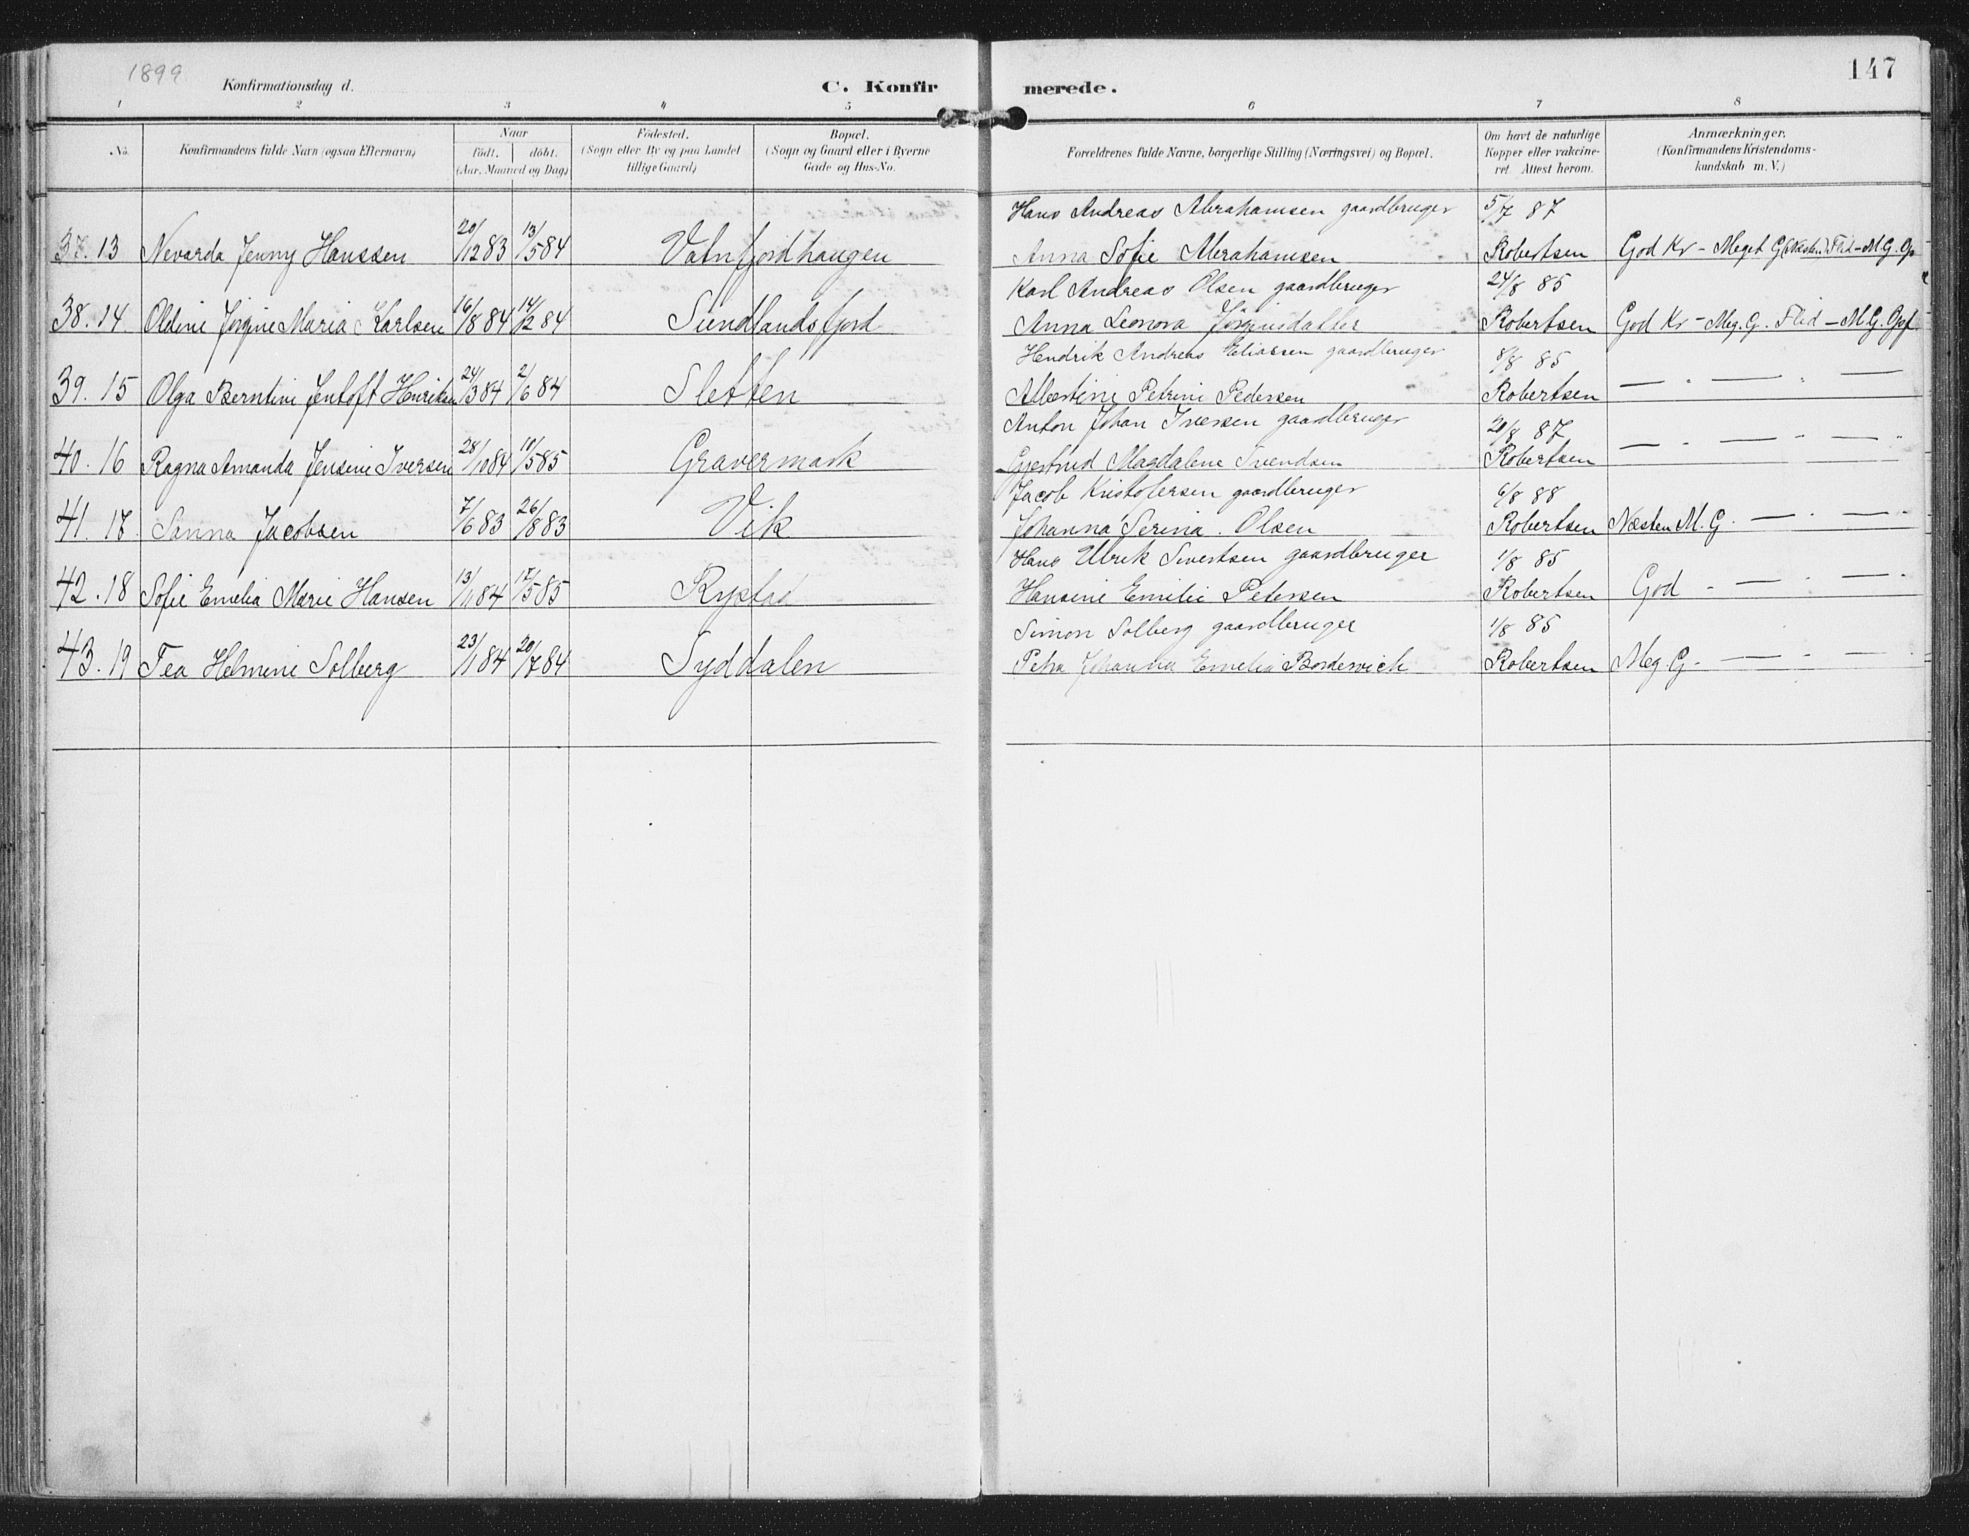 1899
Konfirmationsdag d.
C. Konfirmerede.
147
1 2 3 4 5 6 7 8
No.
Konfirmandens fulde Navn (ogsaa Efternavn)
Naar
födt. döbt.
(Aar, Maaned og Dag)
Födested.
(Sogn eller By og paa Landet
tillige Gaard)
Bopæl.
(Sogn og Gaard eller i Byerne
Gade og Hus-No.
Forældrenes fulde Navne, borgerlige Stilling (Næringsvei) og Bopæl.
Om havt de naturlige
Kopper eller vakcine-
ret. Attest herom.
Anmærkninger.
(Konfirmandens Kristendoms-
kundskab m. V.)
Hans Andreas Abrahamsen gaardbruger 5/7 87
37. 13 Nevarda Jenny Hanssen 20/12 83 13/5 84 Vatnfjordhaugen Anna Sofie Abrahamsen Robertsen God Kr - Meget G (Næsten) Flid - M.G. Op
Karl Andreas Olsen gaardbruger 24/8 85
38. 14 Oldine Jørgine Maria Karlsen 16/8 84 14/12 84 Sundlandsfjord Anna Leonora Jörginsdatter Robertsen God Kr - Meg. G. Flid - M.G. Opf
Hendrik Andreas Eliassen gaardbruger 8/8 85
39. 15 Olga Berntine Jentoft Henriksen 24/3 84 2/6 84 Sletten Albertine Petrine Pedersen Robertsen — " — " —
Anton Johan Iversen gaardbruger 20/8 87
40. 16 Ragna Amanda Jensine Iversen 28/10 84 10/5 85 Gravermark Gjertrud Magdalene Svendsen Robertsen — " — " — "
Jacob Kristofersen gaardbruger 6/8 88
41. 17. Sanna Jacobsen 7/6 83 26/8 83 Vik Johanna Serina. Olsen Robertsen Næsten M.G. — " — "
Hans Ulrik Sivertsen gaardbruger 1/8 85
42. 18 Sofie Emelia Marie Hansen 13/11 84 17/5 85 Rystad Hansine Emilie Petersen Robertsen God - — " — "
Simon Solberg gaardbruger 1/8 85
43. 19 Tea Helmine Solberg 23/1 84 20/7 84 Syddalen Petra Johanna Emelia Bordewich Robertsen Meg. G. - — " — "